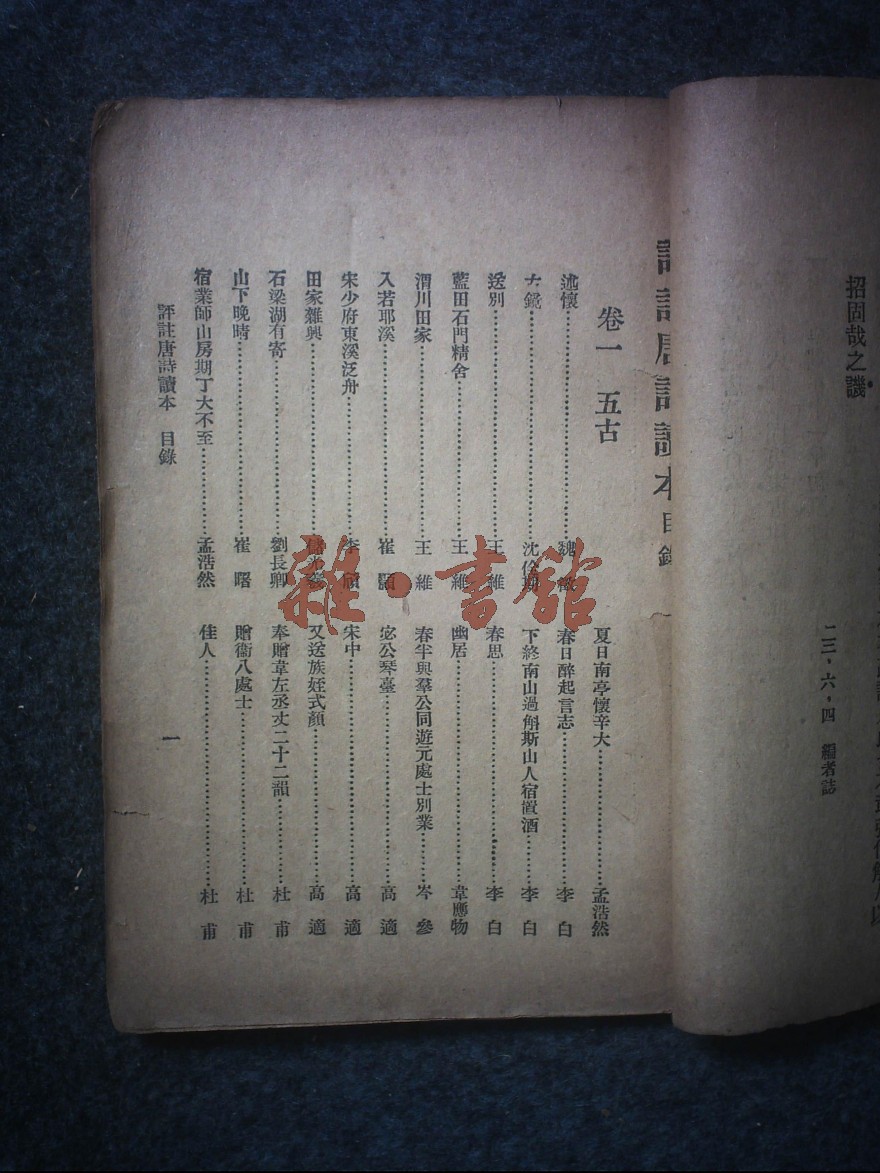 招固哉之譏
二三·六·四　編者誌
評註唐詩讀本目錄
卷一　五古
述懷…………魏　徵
古鏡…………沈佺期
送別…………王　維
藍田石門精舍…………王　維
渭川田家…………王　維
入若耶溪…………崔　顥
宋少府東溪泛舟…………李　頎
田家雜興…………儲光羲
石梁湖有寄…………劉長卿
山下晚晴…………崔　曙
宿業師山房期丁大不至…………孟浩然
夏日南亭懷辛大…………孟浩然
春日醉起言志…………李　白
下終南山過斛斯山人宿置酒…………李　白
春思…………李　白
幽居…………韋應物
春半與羣公同遊元處士別業…………岑　參
宓公琴臺…………高　適
宋中…………高　適
又送族姪式顏…………高　適
奉贈韋左丞丈二十二韻…………杜　甫
贈衞八處士…………杜　甫
佳人…………杜　甫
評註唐詩讀本　目錄
一
雜·書館